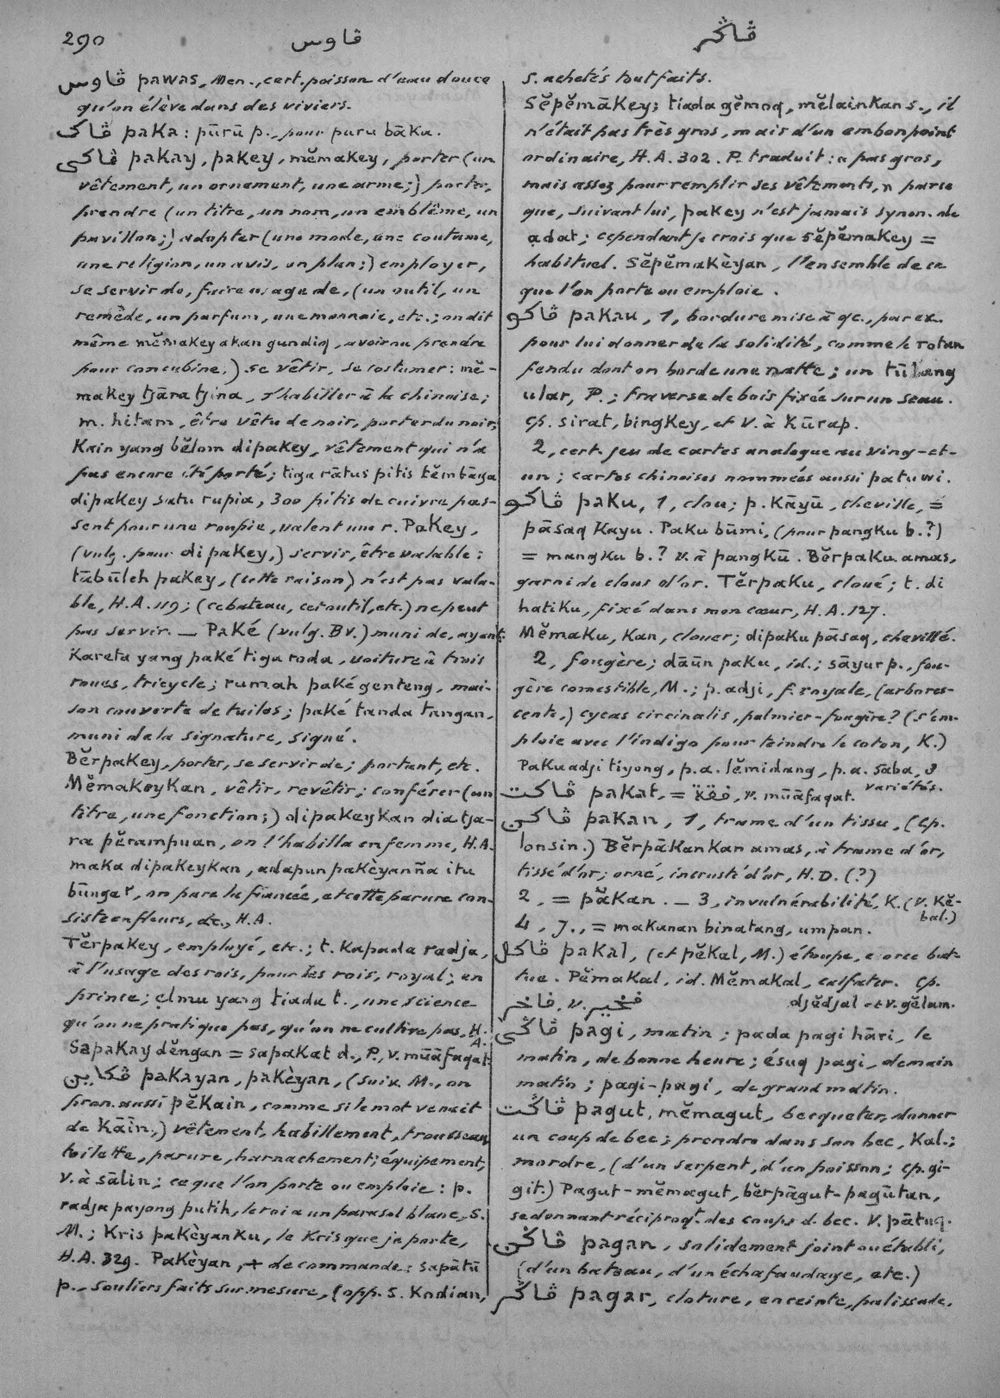 290 ڤاوس ڤاݢر
ڤاوس pawas, Men., cert. poisson d'eau douce
qu'on élève dans des viviers.
ڤاک paka : pūrū p., pour puru bāka.
ڤاکي pakay, pakey, mĕmakey, porter (un
vêtement, un ornement, une arme;) porter,
prendre (un titre, un nom, un emblême, un
pavillon;) adopter (une mode, une coutume,
une religion, un avis, un plan;) employer,
se servir de, faire usage de, (un outil, un
remède, un parfum, une monnaie, etc.; on dit
même mĕmakey akan gundiq, avoir ou prendre
pour concubine.) se vêtir, se costumer: mĕ-
makey tjāra tjina, s'habiller à la chinoise;
m. hitam, être vêtu de noir, porter du noir;
Kain yang bĕlom dipakey, vêtement qui n'a
pas encore été porté; tiga rātus pitis tĕmbāga
dipakey satu rupia, 300 pitis de cuivre pas-
sent pour une roupie, valent une r. Pakey,
(vulg. pour dipakey,) servir, être valable:
tābūleh pakey, (cette raison) n'est pas vala-
ble, H.A. 119; (ce bateau, cet outil, etc.) ne peut
pas servir. — Paké (vulg. Bv.) muni de, ayant:
Kareta yang paké tiga roda, voiture à trois
roues, tricycle; rumah paké genteng, mai-
son couverte de tuiles; paké tanda tangan,
muni de la signature, signé.
Bĕrpakey, porter, se servir de; portant, etc.
Mĕmakeykan, vêtir, revêtir; conférer (un
titre, une fonction;) dipakeykan dia tja-
ra pĕrampuan, on l'habilla en femme, H.A.
maka dipakeykan, adapun pakèyanña itu
būnga², on para la fiancée, et cette parure con-
siste en fleurs, etc., H.A.
Tĕrpakey, employé, etc.; t. kapada radja,
à l'usage des rois, pour les rois, royal; en
prince; elmu yang tiada t., une science
qu'on ne pratique pas, qu'on ne cultive pas, H.A.
Sapakay dĕngan = sapakat d., P., v. mūāfaqat.
ڤکاين pakayan, pakèyan, (suiv. M., on
pron. aussi pĕkain, comme si le mot venait
de Kāin,) vêtement, habillement, trousseau,
toilette, parure, harnachement, équipement,
v. à sālin; ce que l'on porte ou emploie : p.
radja payong putih, le roi a un parasol blanc, S.
M.; Kris pakèyanku, le Kris que je porte,
H.A. 329. Pakèyan, + de commande: sapātū
p., souliers faits sur mesure, (opp. s. Kodian,
s. achetés tout faits.
Sĕpĕmākey; tiada gĕmoq, mĕlainkan s., il
n'était pas très gros, mais d'un embonpoint
ordinaire, H.A. 302. P. traduit: « pas gros,
mais assez pour remplir ses vêtements, » parce
que, suivant lui, pakey n'est jamais synon. de
adat; cependant je crois que sĕpĕmakey =
habituel. Sĕpĕmakèyan, l'ensemble de ce
que l'on porte ou emploie.
ڤاکو pakau, 1, bordure mise à qc., par ex.
pour lui donner de la solidité, comme le rotan
fendu dont on borde une natte; un
ular, P.; traverse de bois fixée sur un seau.
Cp. sirat, bingkey, et v. à Kūrap.
2, cert. jeu de cartes analogue au ving-et-
un; cartes chinoises nommées aussi patuwi.
ڤاکو paku, 1, clou; p. Kāyū, cheville, =
pāsaq Kayu. Paku būmi, (pour pangku b.?)
= mangku b.? v. à pangkū. Bĕrpaku amas,
garni de clous d'or. Tĕrpaku, cloué; t. di
hatiku, fixé dans mon cœur, H.A. 127.
Mĕmaku, Kan, clouer; dipaku pāsaq, chevillé.
2, fougère; dāūn paku, id.; sāyur p., fou-
gère comestible, M.; p. adji, f. royale, (arbores-
cente,) cycas circinalis, palmier-fougère? (s'em-
ploie avec l'indigo pour teindre le coton, K.)
Paku adji tiyong, p. a. lĕmidang, p. a. saba, 3
variétés.
ڤاکت pakat, =, v. mūāfaqat.
ڤاکن pakan, 1, trame d'un tissu, (Cp.
lonsin.) Bĕrpākankan amas, à trame d'or,
tissé d'or; orné, incrusté d'or, H.D. (?)
2, = pĕkan. — 3, invulnérabilité, K. (v. Kĕ-
bal.)
4, J., = makanan binatang, umpan.
ڤاکل pakal, (et pĕkal, M.) étoupe, écorce bat-
tue. Pĕmakal, id. Mĕmakal, calfater. Cp.
djĕdjal et v. gĕlam.
فاخر, v. فخير
ڤاݢي pagi, matin; pada pagi hāri, le
matin, de bonne heure; ésuq pagi, demain
matin; pagi-pagi, de grand matin.
ڤاݢت pagut, mĕmagut, becqueter, donner
un coup de bec; prendre dans son bec, Kal.;
mordre, (d'un serpent, d'un poisson; cp. gi-
git.) Pagut-mĕmagut, bĕrpāgut-pagūtan,
se donnant réciproqᵗ. des coups d. bec. V. pātuq.
ڤاݢن pagan, solidement joint ou établi,
(d'un bateau, d'un échafaudage, etc.)
ڤاݢر pagar, cloture, enceinte, palissade,